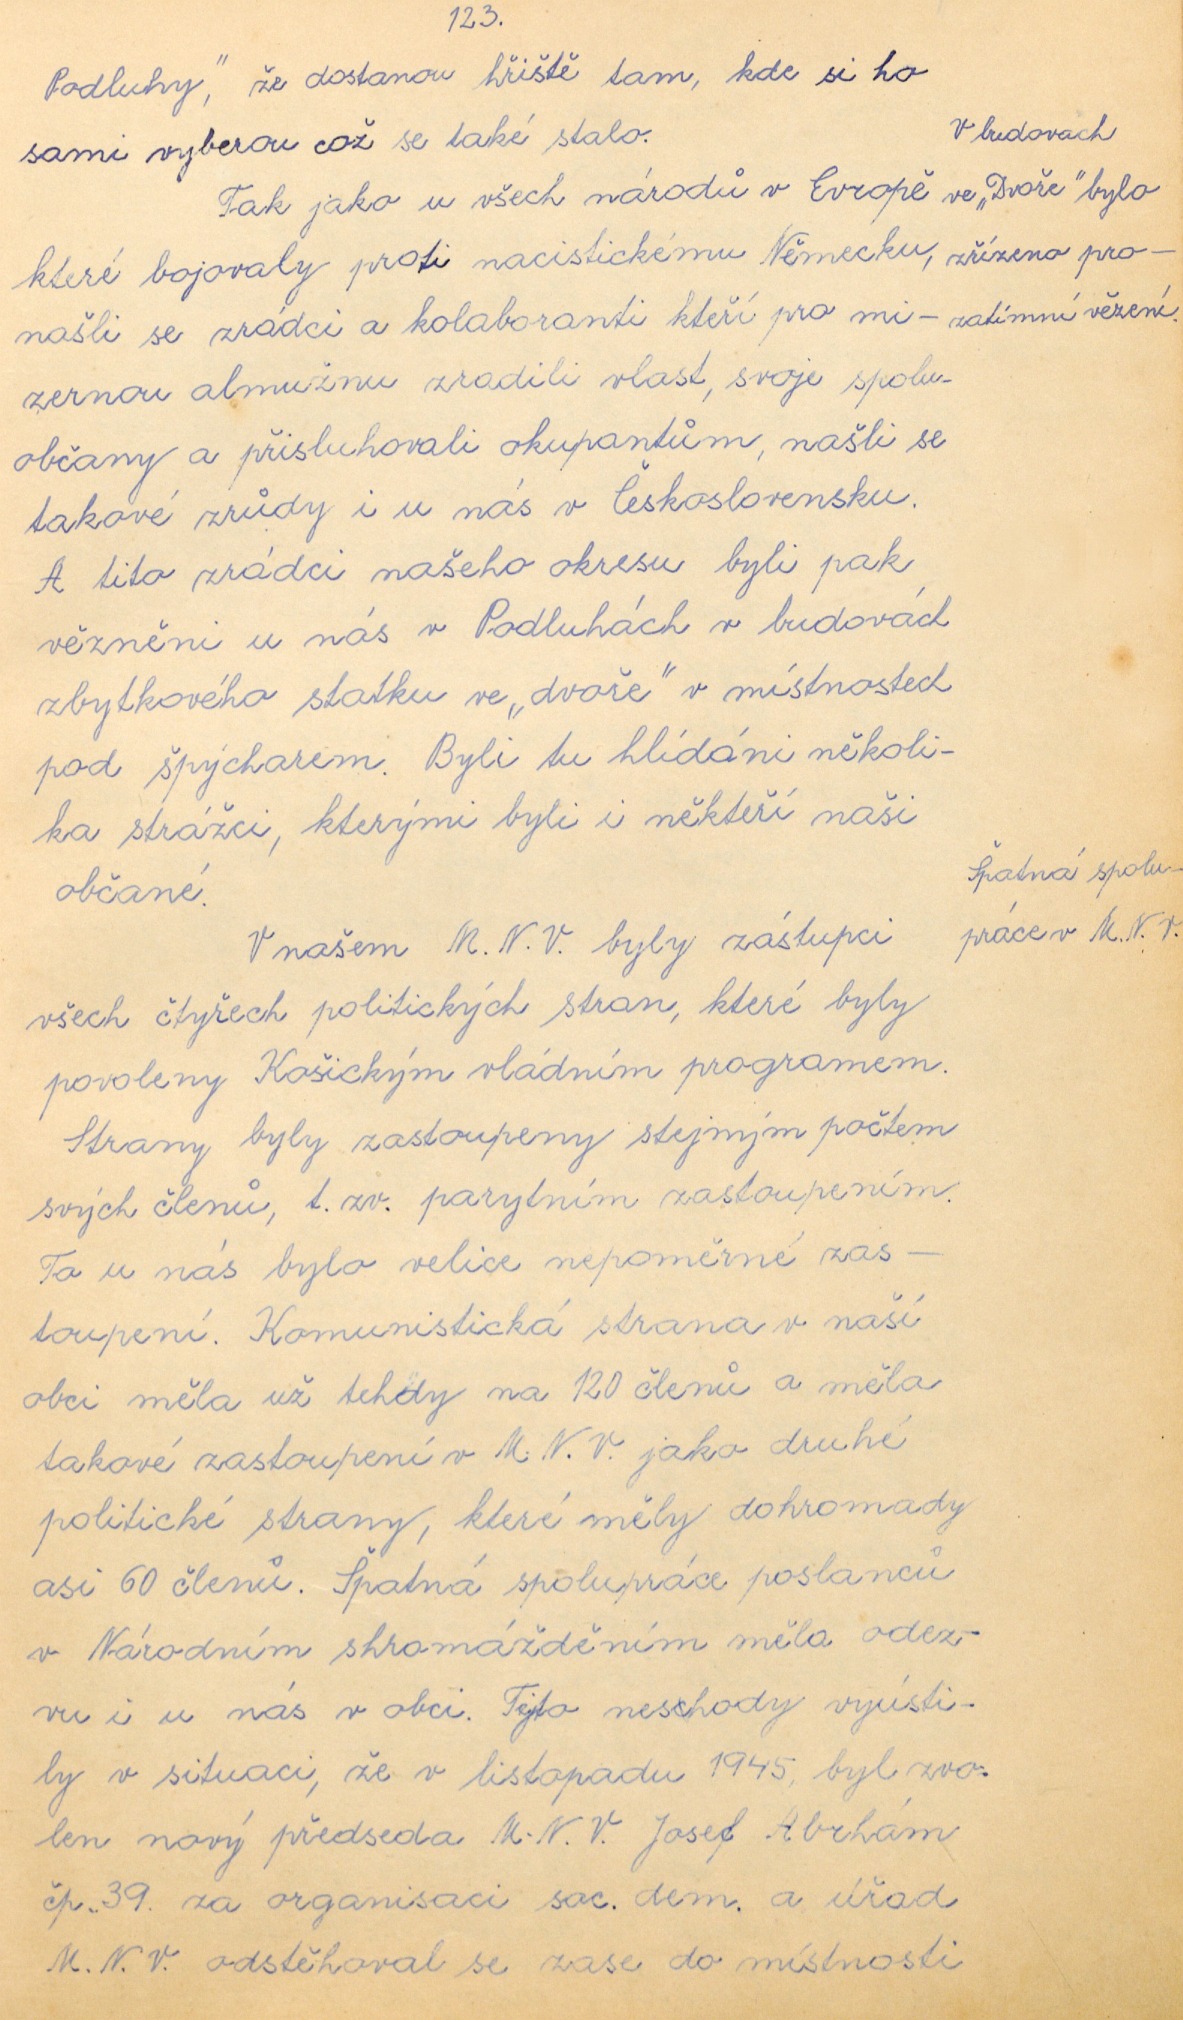 123.
Podluhy," že dostanou hřiště tam, kde si ho
sami vyberou což se také stalo.
V budovách
ve „Dvoře" bylo
zřízeno pro-
zatímní vězení.
Tak jako u všech národů v Evropě
které bojovaly proti nacistickému Německu,
našli se zrádci a kolaboranti kteří pro mi-
zernou almužnu zradili vlast, svoje spolu-
občany a přisluhovali okupantům, našli se
takové zrůdy i u nás v Československu.
A tito zrádci našeho okresu byli pak
vězněni u nás v Podluhách v budovách
zbytkového statku ve „dvoře" v místnostech
pod špýcharem. Byli tu hlídáni několi-
ka strážci, kterými byli i někteří naši
občané.
Špatná spolu-
práce v M.N.V.
V našem M.N.V. byly zástupci
všech čtyřech politických stran, které byly
povoleny Košickým vládním programem.
Strany byly zastoupeny stejným počtem
svých členů, t. zv. parytním zastoupením.
To u nás bylo velice nepoměrné zas-
toupení. Komunistická strana v naší
obci měla už tehdy na 120 členů a měla
takové zastoupení v M.N.V. jako druhé
politické strany, které měly dohromady
asi 60 členů. Špatná spolupráce poslanců
v Národním shromážděním měla odez-
vu i u nás v obci. Tyto neschody vyústi-
ly v situaci, že v listopadu 1945, byl zvo-
len nový předseda M.N.V. Josef Abrhám
čp. 39. za organisaci soc. dem. a úřad
M.N.V. odstěhoval se zase do místnosti